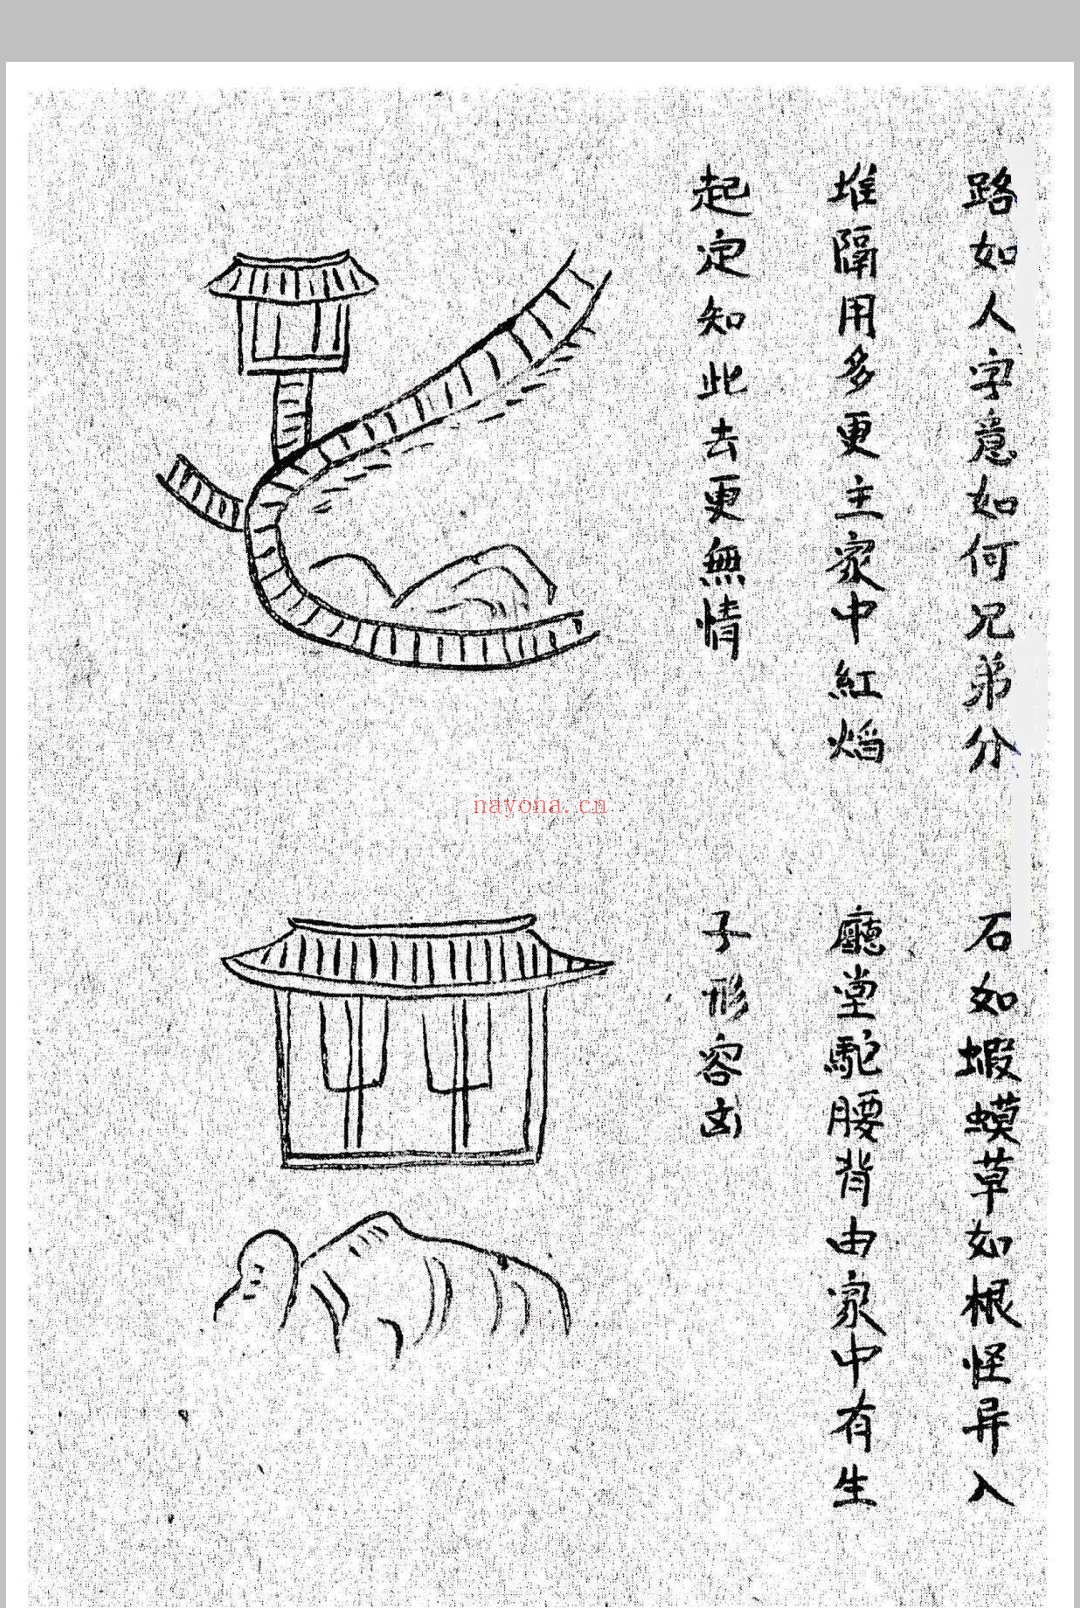 路如人字意如何兄弟分
堆隔用多更主家中紅焰
起定知此去更無情
石如蝦蟆草如根怪异入
廳堂駝腰背由家中有生
子形容凶
nayona.cn